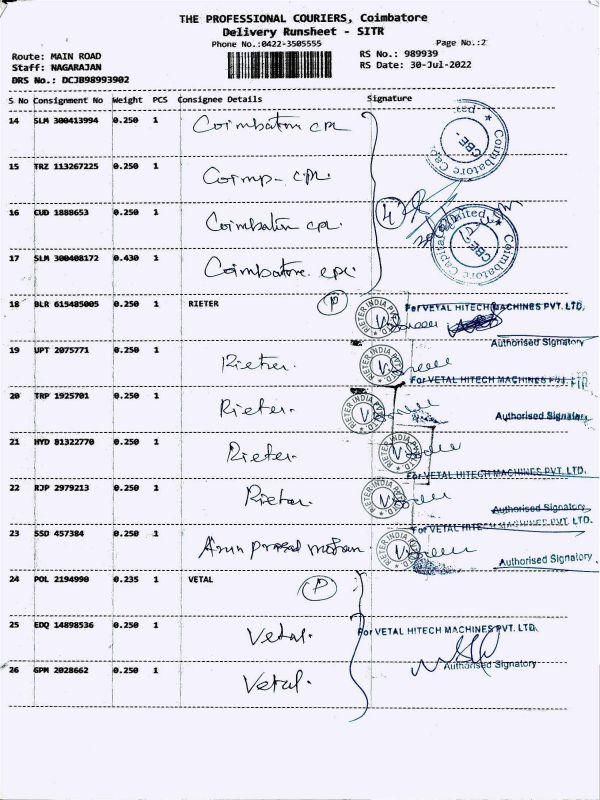 THE PROFESSIONAL COURIERS, Coimbatore
Delivery Runsheet - SITR
Phone No.:0422-3505555 Page No.:2
Route: MAIN ROAD RS No.: 989939
Staff: NAGARAJAN RS Date: 30-Jul-2022
DRS No.: DCJB98993902
S No Consignment No Weight PCS Consignee Details Signature
14 SLM 300413994 0.250 1 Coimbatore cpl
15 TRZ 113267225 0.250 1 cpl.
16 CUD 1888653 0.250 1 Coimbatore cpl.
17 SLM 300408172 0.430 1 Coimbatore cpl.
Coimbatore
CBE.
4
Limited
Coimbatore Capital
CBE
18 BLR 615485005 0.250 1 RIETER P RIETER INDIA PVT. LTD. For VETAL HITECH MACHINES PVT. LTD.
Authorised Signatory
19 UPT 2075771 0.250 1 Rieter. RIETER INDIA PVT. LTD.
For VETAL HITECH MACHINES PVT. LTD.
20 TRP 1925701 0.250 1 Rieter. RIETER INDIA Authorised Signatory
21 HYD 81322770 0.250 1 Rieter. RIETER INDIA PVT. LTD.
For VETAL HITECH MACHINES PVT. LTD.
22 RJP 2979213 0.250 1 Rieter. RIETER INDIA PVT. LTD. Authorised Signatory
For VETAL HITECH MACHINES PVT. LTD.
23 SSD 457384 0.250 1 Arun prasad mohan RIETER INDIA PVT. LTD. Authorised Signatory
24 POL 2194990 0.235 1 VETAL P
25 EDQ 14898536 0.250 1 Vetal. For VETAL HITECH MACHINES PVT. LTD.
Authorised Signatory
26 GPM 2028662 0.250 1 Vetal.